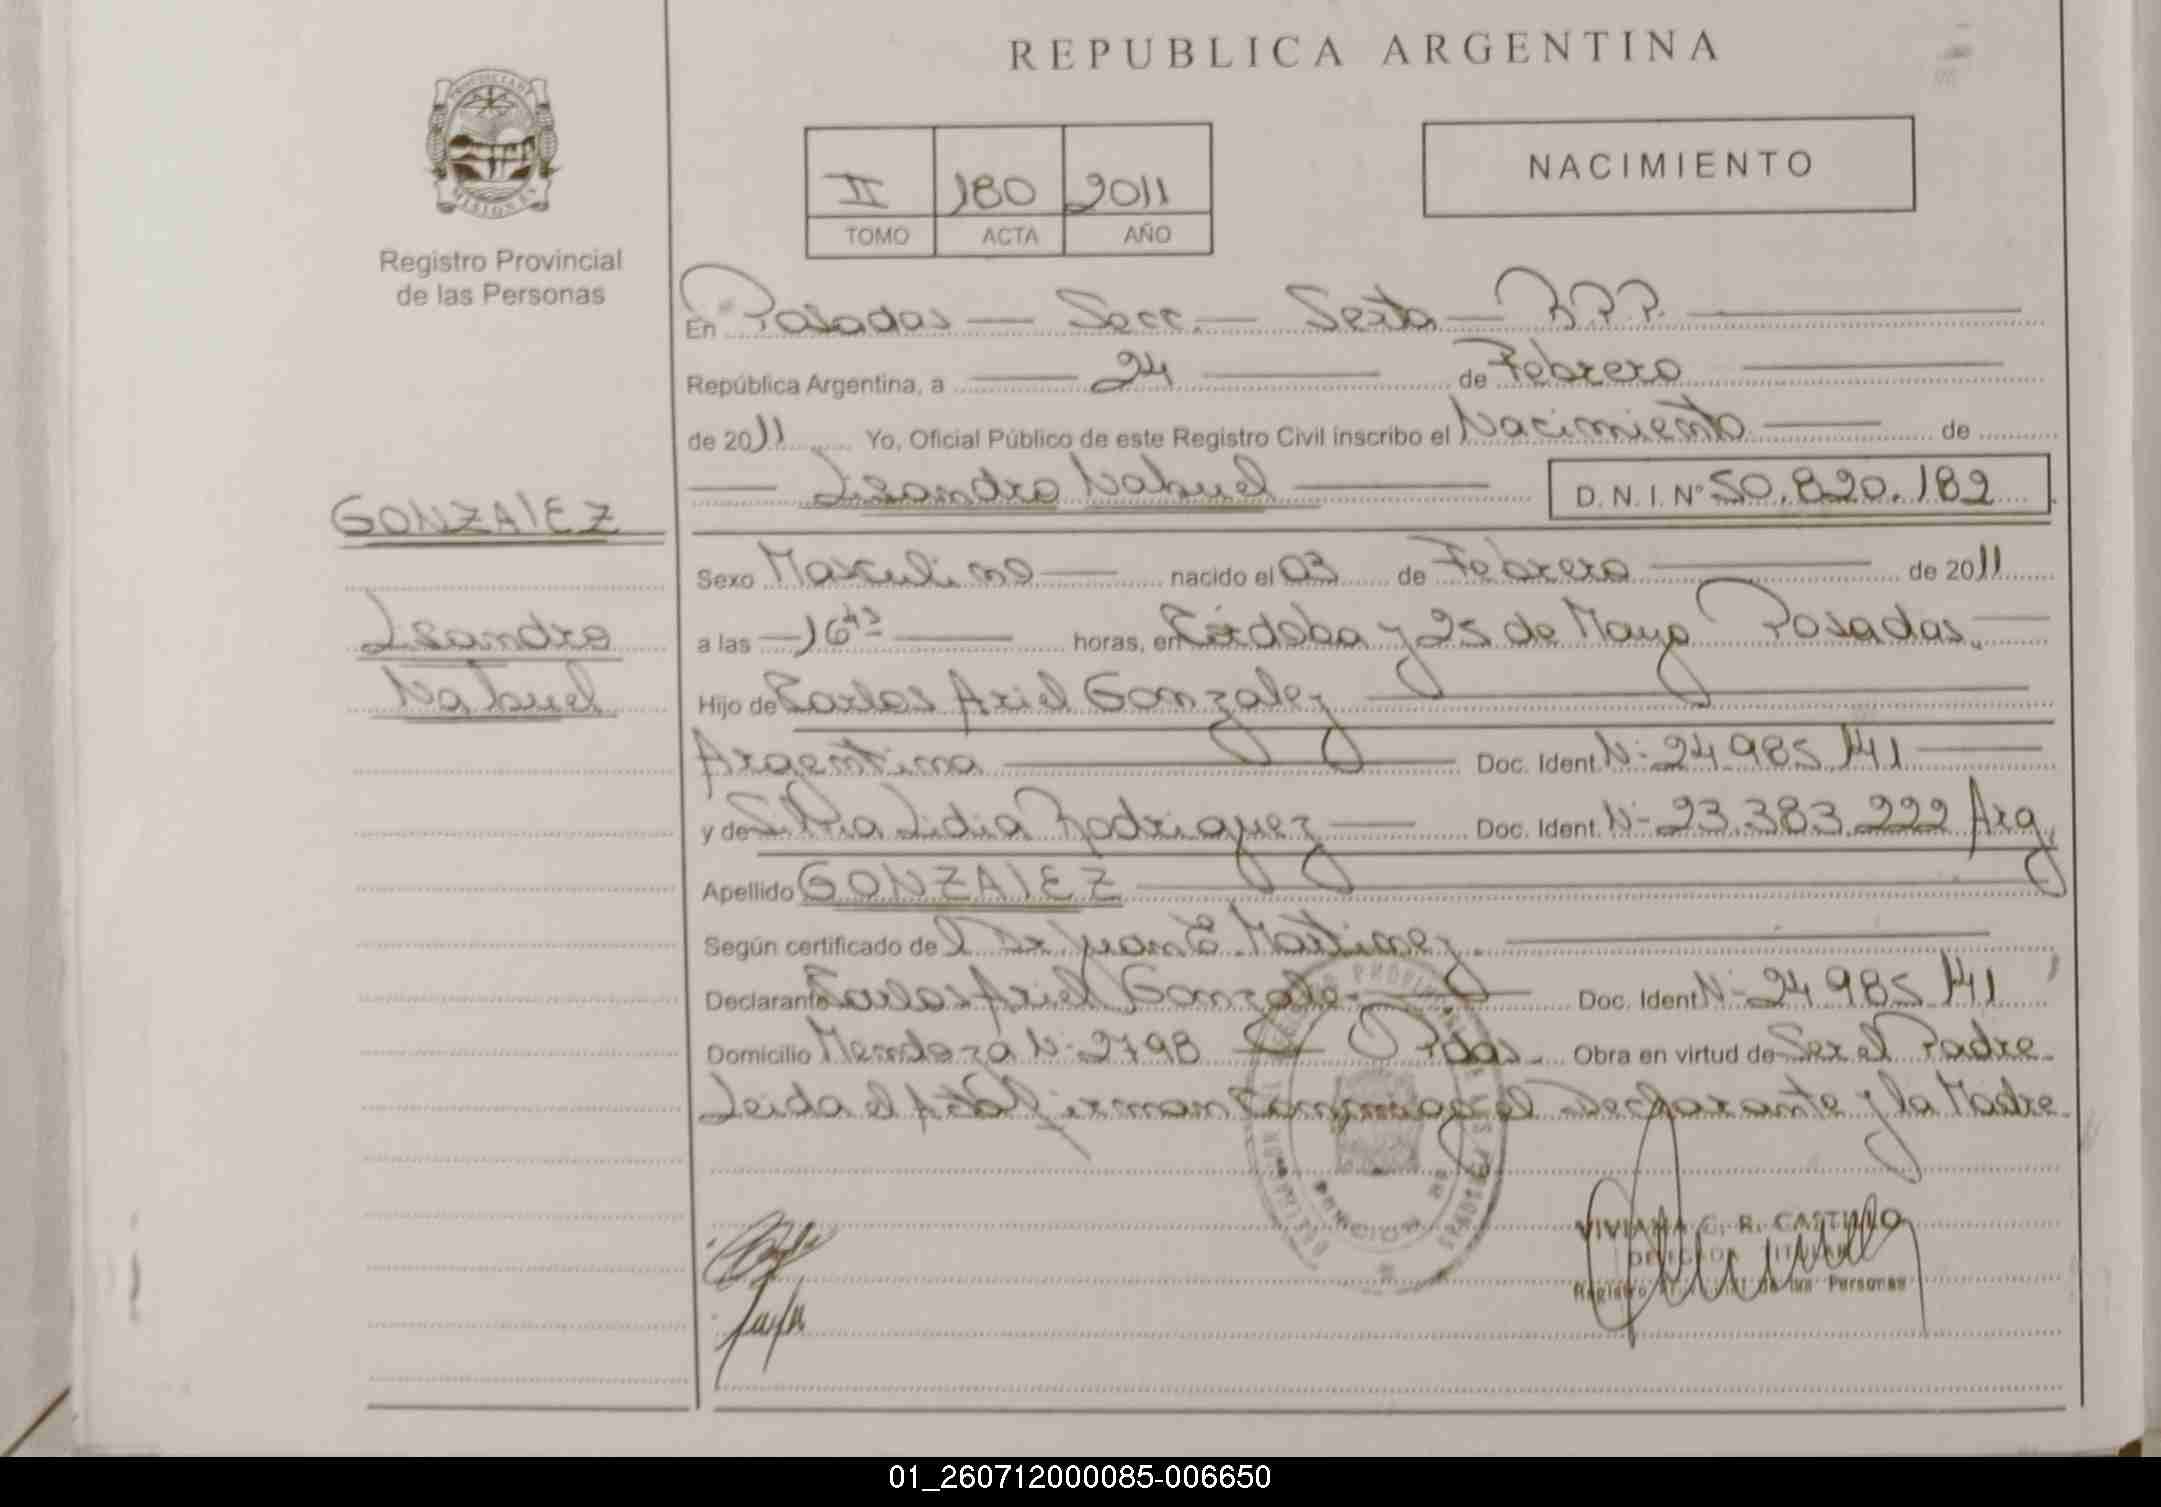 REPUBLICA ARGENTINA
PROVINCIA DE MISIONES
Registro Provincial
de las Personas
II 180 2011
TOMO ACTA AÑO
NACIMIENTO
En Posadas — Secc. — Sexta — R.P.P.
República Argentina, a 24 de Febrero
de 2011 Yo, Oficial Público de este Registro Civil inscribo el Nacimiento de
Leandro Nahuel D. N. I. Nº 50.820.182
GONZALEZ
Leandro
Nahuel
Sexo Masculino nacido el 03 de Febrero de 2011
a las 16 43 horas, en Córdoba y 25 de Mayo Posadas.
Hijo de Carlos Ariel Gonzalez
Argentina Doc. Ident. Nº 24 985 141
y de Silvia Lidia Rodriguez Doc. Ident. Nº 23.383.222 Arg.
Apellido GONZALEZ
Según certificado del Dr Juan E. Martinez.
Declarante Carlos Ariel Gonzalez Doc. Ident. Nº 24 985 141
Domicilio Mendoza Nº 2798 Pdas. Obra en virtud de Ser el Padre
Leida el Acta firman conmigo el Declarante y la Madre
VIVIANA C. R. CASTILLO
TITULAR
Registro de las Personas
01_260712000085-006650